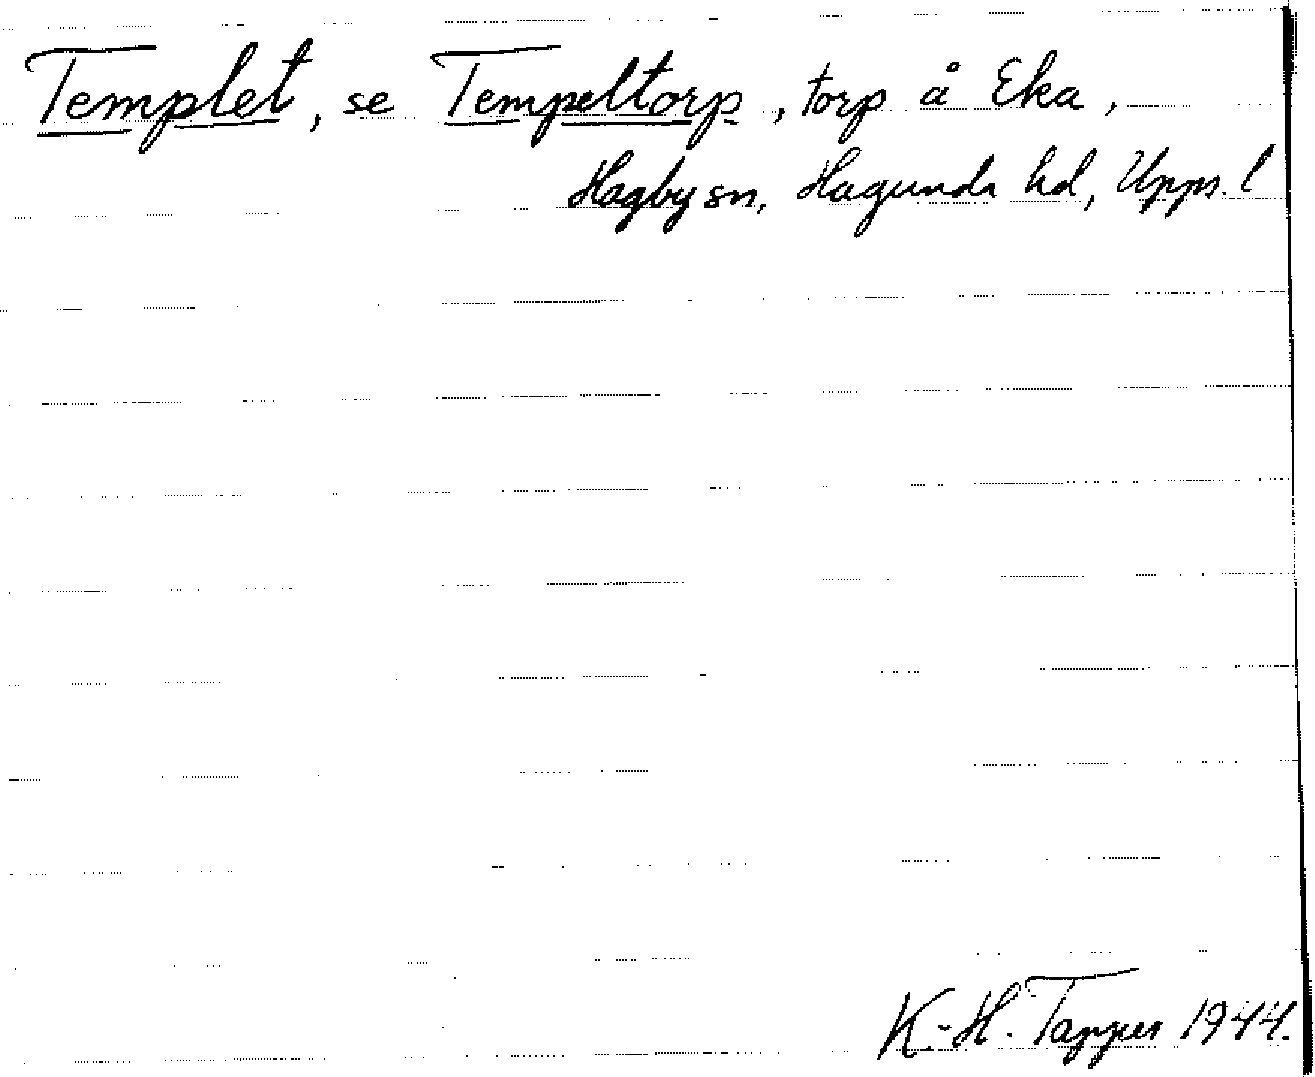 Templet, se Tempeltorp, torp å Eka,
Hagby sn, Hagunda hd, Upps. l
K.-H. Tapper 1944.